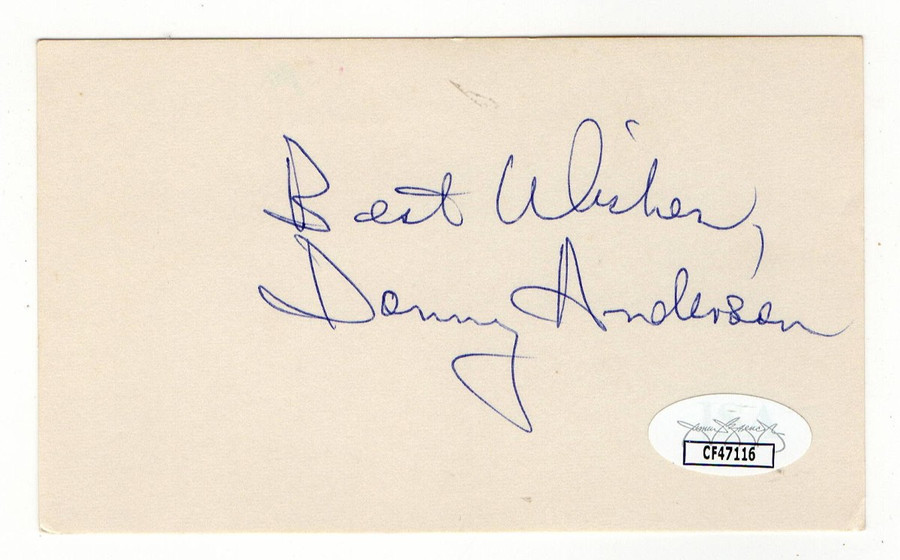 Best Wishes,
Donny Anderson
CF47116